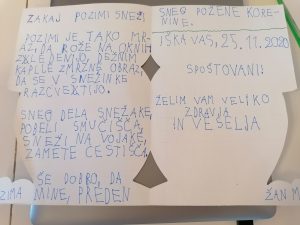 ZAKAJ POZIMI SNEŽI
POZIMI JE TAKO MR-
AZ, DA ROŽE NA OKNIH
ZKLEDENIJO, DEŽNIM
KAPLLE ZMRZNE OBRAZ,
DA SE V SNEŽINKE
RAZCVETIJO.
SNEG DELA SNEŽAKE,
POBELI SMUČIŠČA,
SNEŽI NA VOJAKE,
ZAMETE CESTIŠČA.
ŠE DOBRO, DA
ZIMA MINE, PREDEN
SNEG POŽENE KORE-
NINE.
IŠKA VAS, 25.11.2020
SPOŠTOVANI!
ŽELIM VAM VELIKO
ZDRAVJA
IN VESELJA
ŽAN M